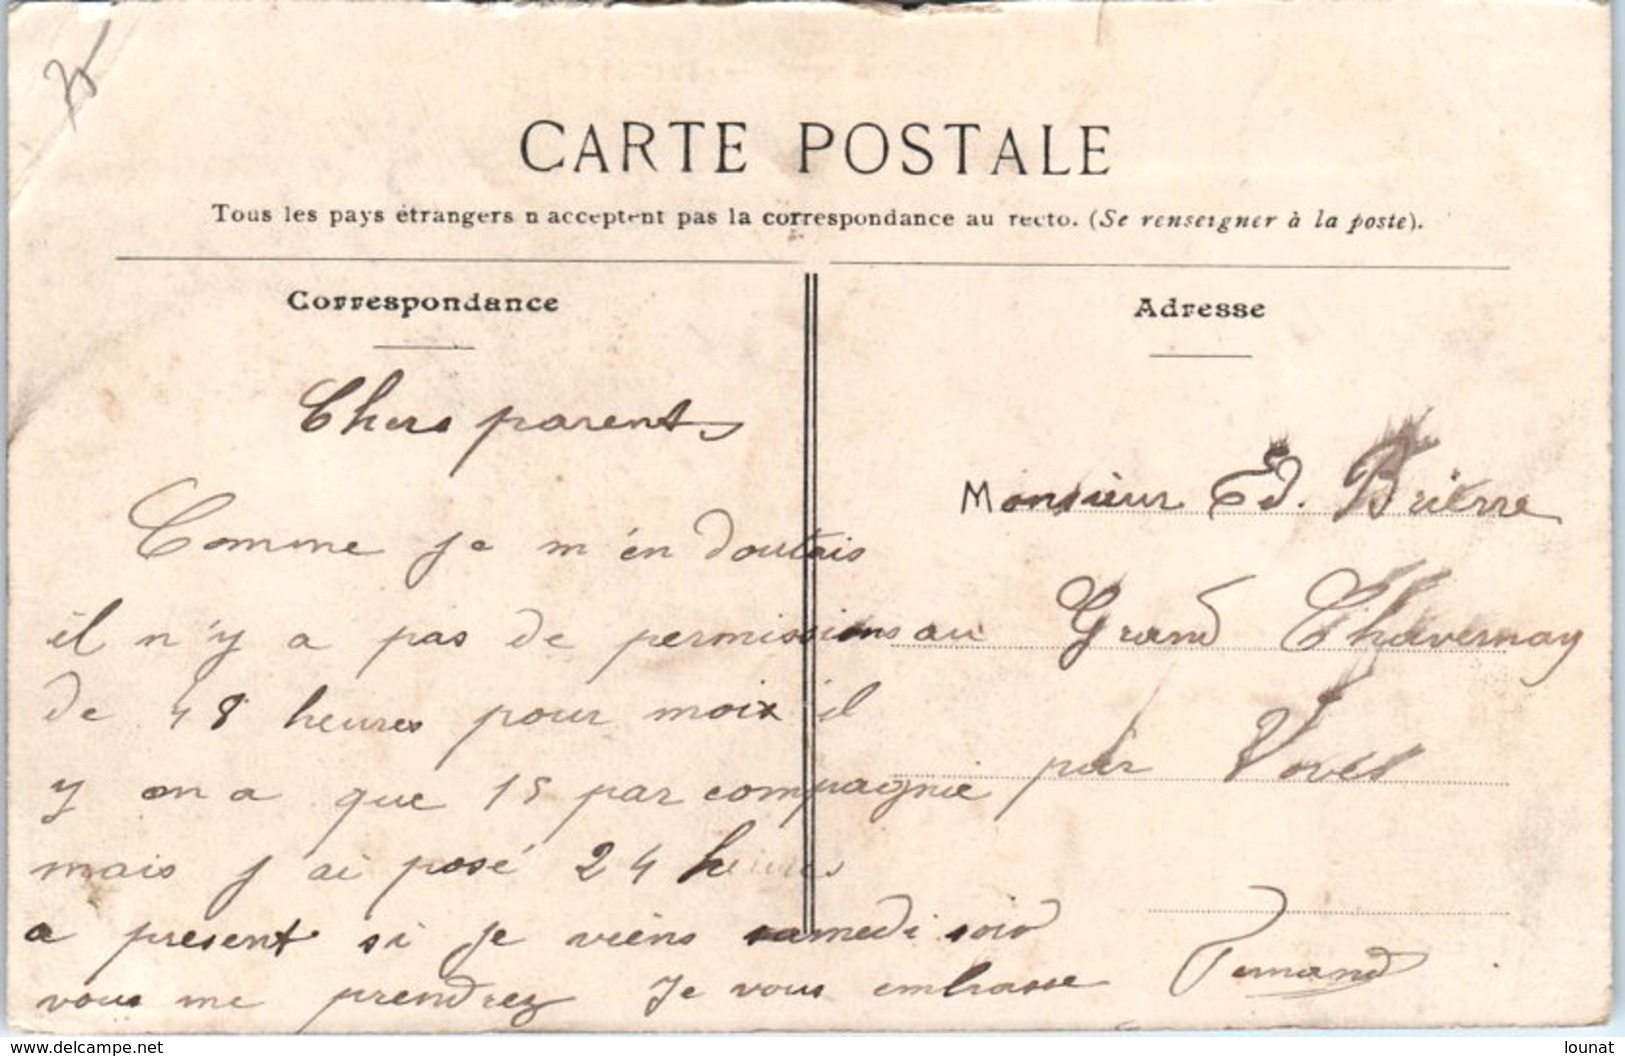 75
CARTE POSTALE
Tous les pays étrangers n acceptent pas la correspondance au recto. (Se renseigner à la poste).
Correspondance
Chers parents
Comme je m'en doutais
il n'y a pas de permissions
de 48 heures pour moix il
y en a que 15 par compagnie
mais j ai posé 24 heures
a present si je viens samedi soir
vous me prendrez Je vous embrasse Fernand
Adresse
Monsieur Ed. Brierre
au Grand Chavernay
par Voves
www.delcampe.net
lounat